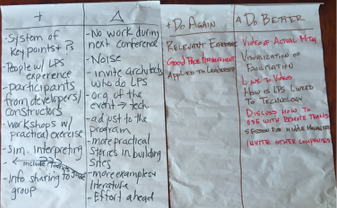 +
- System of
Keypoints + Ps
- People w/ LPS
experience
- Participants
from developers/
constructors
- Workshops w/
practical exercise
- Sim. interpreting
- Info sharing to
group
Δ
- No work during
next conference
- Noise
- invite architects
who do LPS
- Org of the
event → tech
- adjust to the
program
- more practical
stories in building
sites
- more examples
literature
- Effort ahead
+ Do Again
Relevant Exercise
Good Time Management
Applied to Leadership
Δ Do Better
Video of Actual Mtg
Visualization of
Link to Video
How is LPS Linked
to Technology
Discuss how to
use with Remote Teams
Session for Middle Managers
Invite other companies